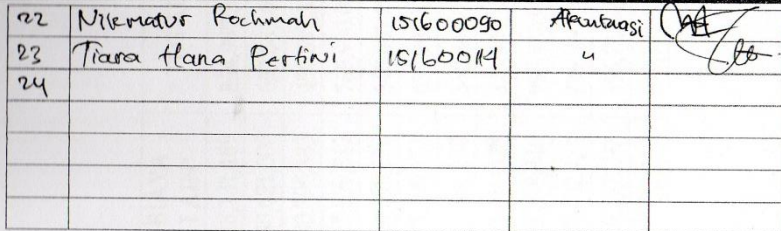 22 Nikmatur Rochmah 151600090 Akuntansi
23 Tiara Hana Pertiwi 151600114 "
24